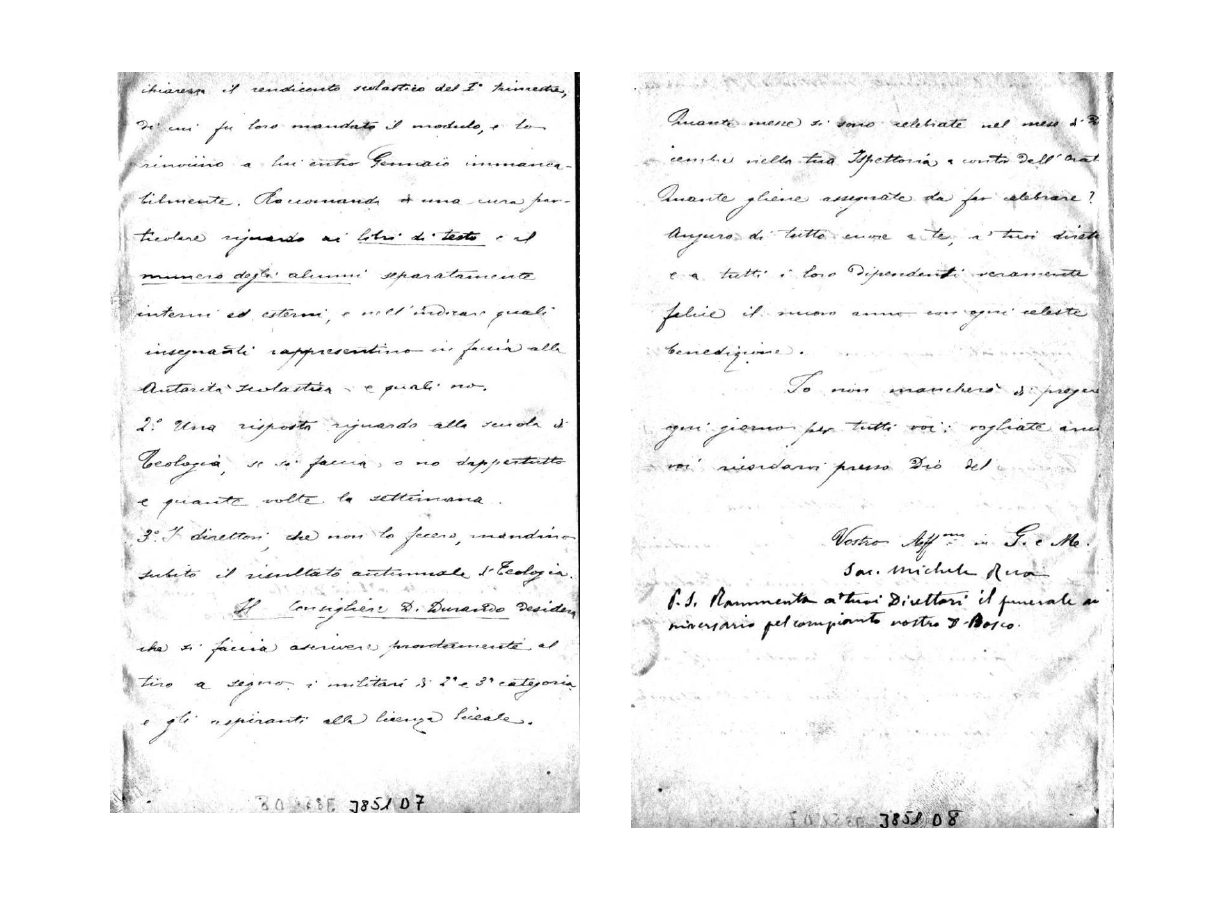 chiarezza il rendiconto scolastico del I° trimestre,
di cui fu loro mandato il modulo, e lo
rinviino a lui entro Gennaio immanca-
bilmente. Raccomanda di una cura par-
ticolare riguardo ai libri di testo e al
numero degli alunni separatamente
interni ed esterni, e nell'indicare quali
insegnanti rappresentino in faccia alla
Autorità scolastica e quali no.
2° Una risposta riguardo alla scuola di
Teologia, se si faccia o no dappertutto
e quante volte la settimana.
3° I direttori, che non lo fecero, mandino
subito il risultato autunnale d'Teologia.
Il Consigliere D. Durando desidera
che si faccia ascrivere prontamente al
tiro a segno i militari di 2ª e 3ª categoria
e gli aspiranti alla licenza liceale.
J851 D7
Quante messe si sono celebrate nel mese di D
icembre nella tua Ispettoria a conto dell'Orat
Quante gliene assegnate da far celebrare?
Auguro di tutto cuore a te, a' tuoi dirett
e a tutti i loro dipendenti veramente
felice il nuovo anno con ogni celeste
benedizione.
Io non mancherò di pregar
ogni giorno per tutti voi; vogliate anch
voi ricordarvi presso Dio del
Vostro Aff.mo in G. e M.
Sac. Michele Rua
P.S. Rammenta a' tuoi Direttori il funerale an
niversario pel compianto nostro D. Bosco.
3851 D8